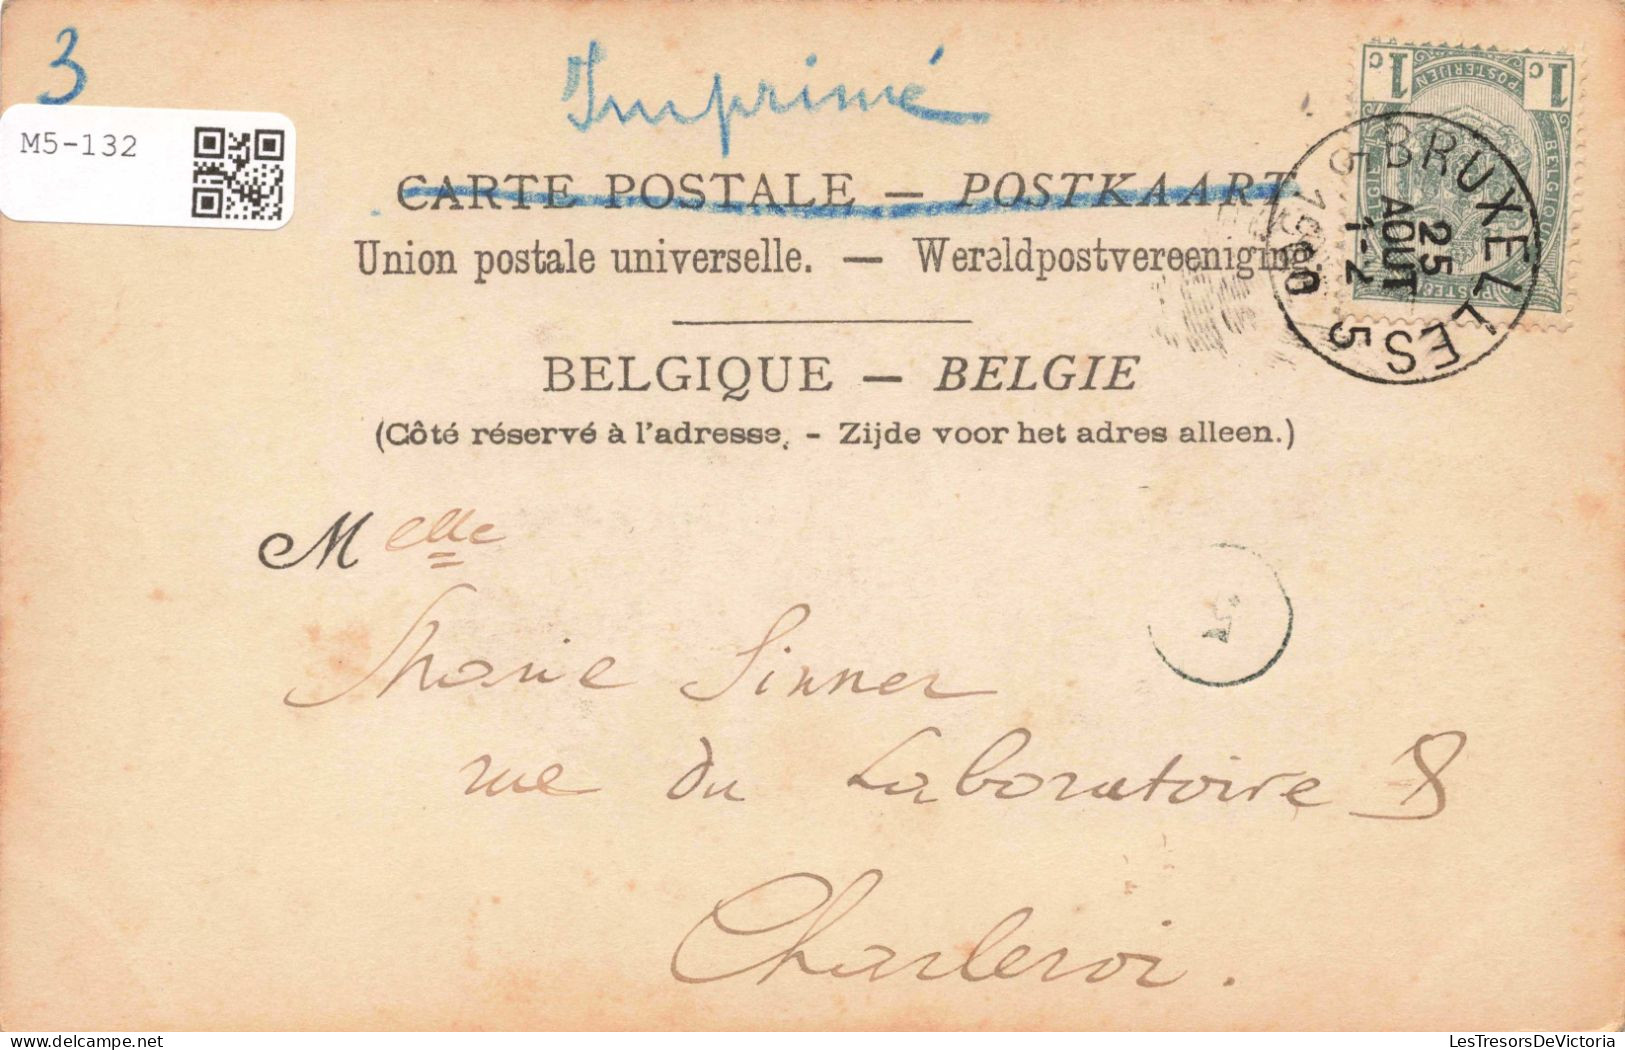 3
Imprimé
M5-132
CARTE POSTALE — POSTKAART
Union postale universelle. — Wereldpostvereeniging
BELGIQUE — BELGIE
(Côté réservé à l'adresse. - Zijde voor het adres alleen.)
1c 1c
POSTERIJEN
BELGIQUE
BRUXELLES 5
25
AOUT
1-2
Melle
Marie Sinner
rue du Laboratoire 8
Charleroi.
LesTresorsDeVictoria